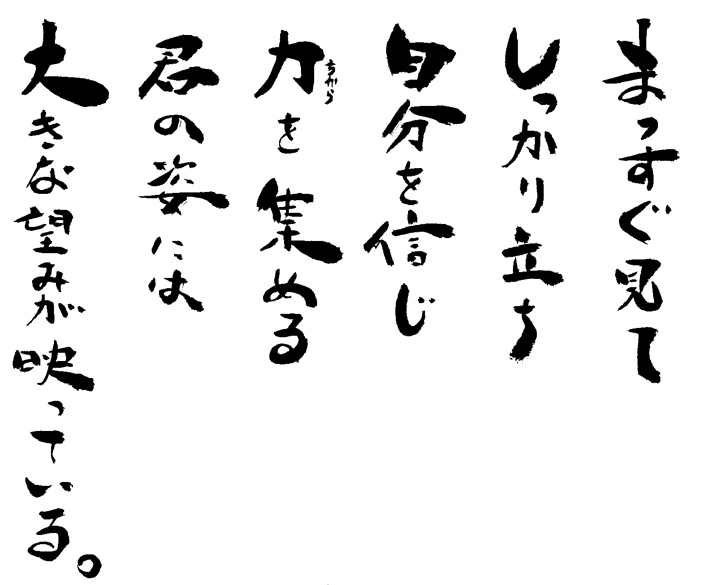 まっすぐ見て
しっかり立ち
自分を信じ
力を集める
ちから
君の姿には
大きな望みが映っている。